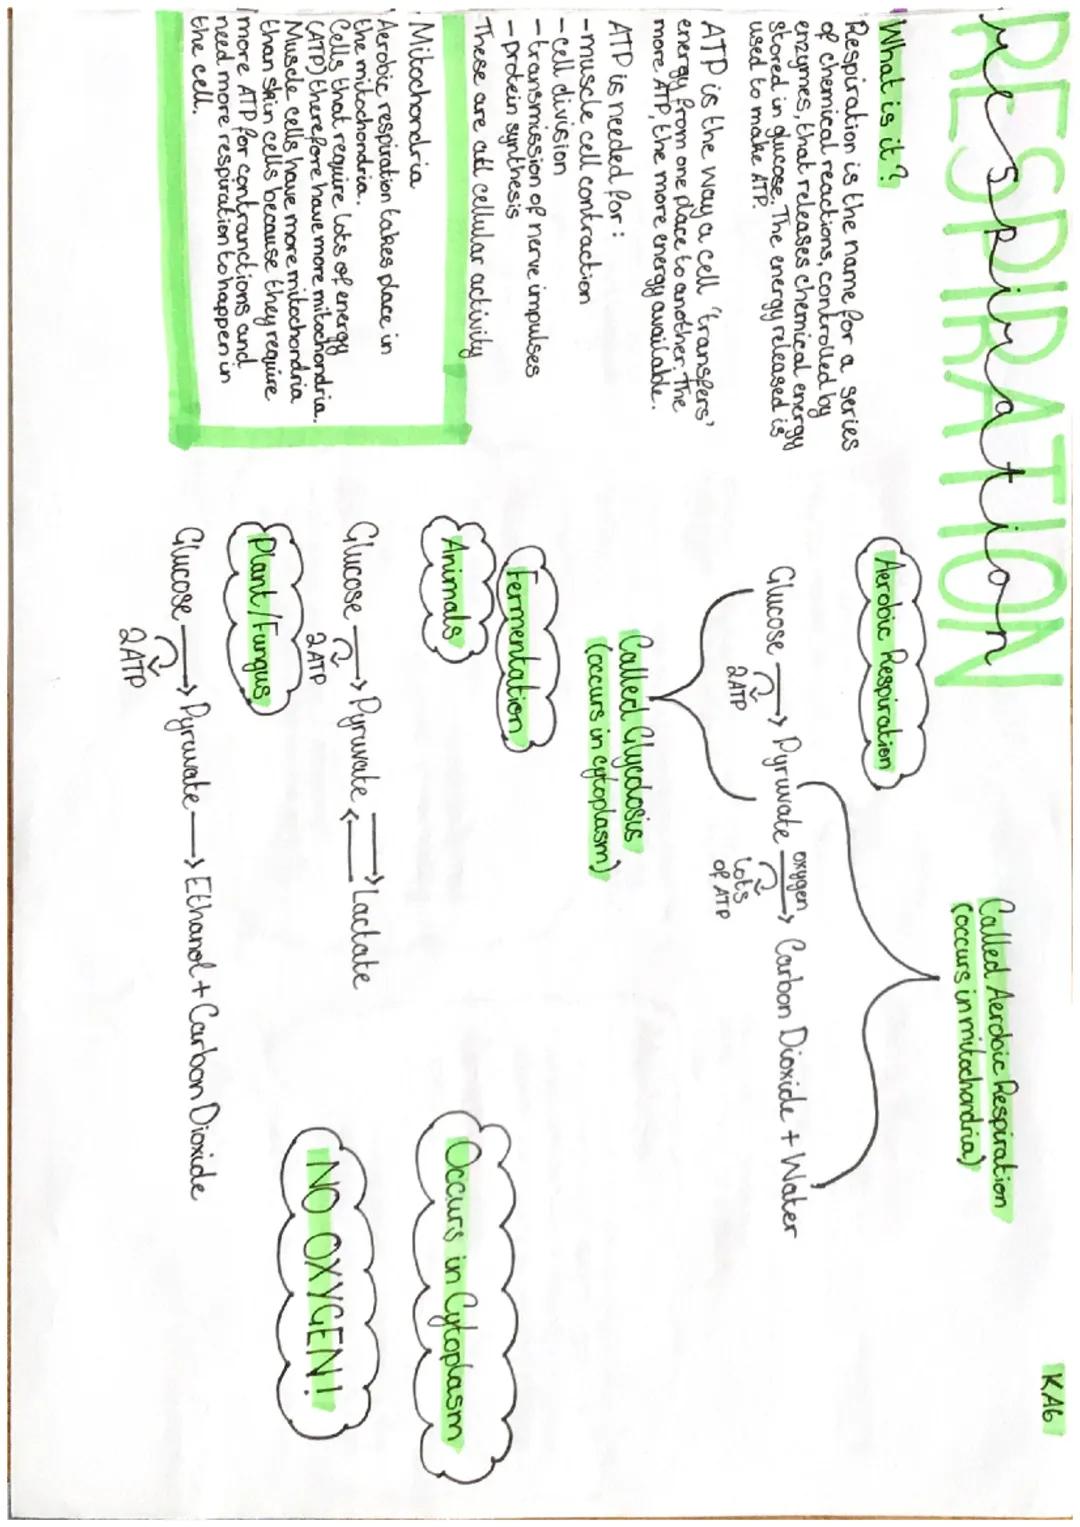 RESPIRATION
Respiration
KA6
What is it?
Respiration is the name for a series
of chemical reactions, controlled by
enzymes, that releases chemical energy
stored in glucose. The energy released is
used to make ATP.
ATP is the way a cell 'transfers'
energy from one place to another. The
more ATP, the more energy available.
ATP is needed for:
-muscle cell contraction
-cell division
-transmission of nerve impulses
-protein synthesis
These are all cellular activity
Mitochondria
Aerobic respiration takes place in
the mitochondria.
Cells that require lots of energy
(ATP) therefore have more mitochondria.
Muscle cells have more mitochondria
than skin cells because they require
more ATP for contranctions and
need more respiration to happen in
the cell.
Aerobic Respiration
Called Aerobic Respiration
(occurs in mitochondria)
Glucose → Pyruvate oxygen → Carbon Dioxide + Water
2ATP
lots
of ATP
Called Glycolosis
(occurs in cytoplasm)
Fermentation
Animals
Glucose → Pyruvate ⇄ Lactate
2ATP
Plant/Fungus
Glucose → Pyruvate → Ethanol + Carbon Dioxide
2ATP
Occurs in Cytoplasm
NO OXYGEN!